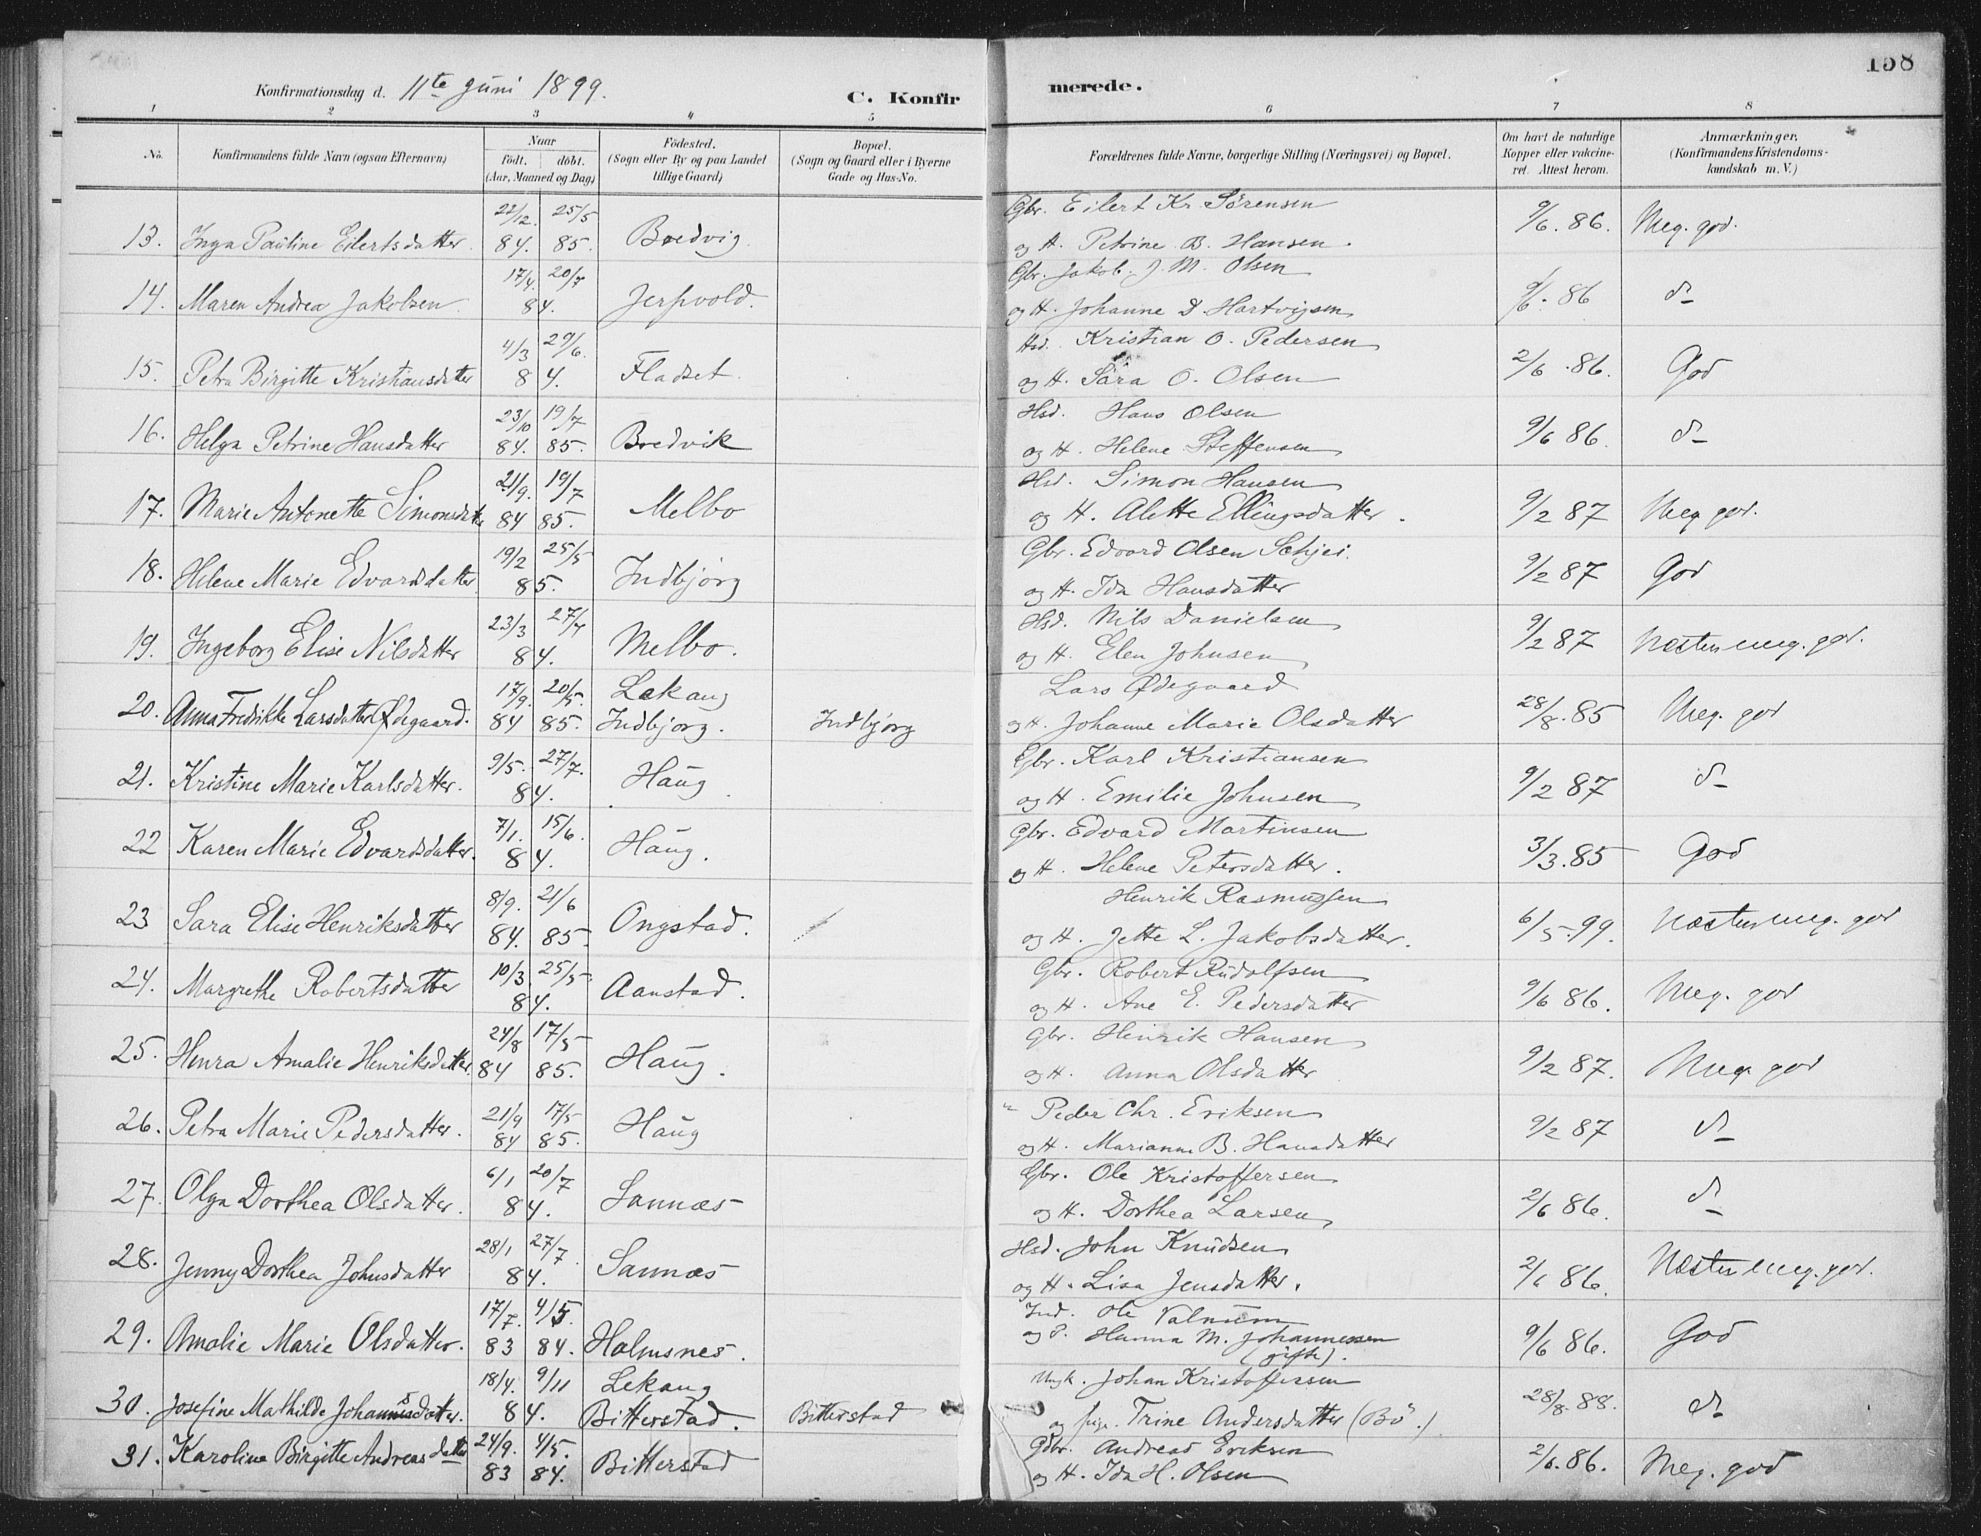 158
Konfirmationsdag d. 11te Juni 1899.
C. Konfirmerede.
1 2 3 4 5 6 7 8
No. Konfirmandens fulde Navn (ogsaa Efternavn) Naar født. døbt. (Aar, Maaned og Dag) Födested. (Sogn eller By og paa Landet tillige Gaard) Bopæl. (Sogn og Gaard eller i Byerne Gade og Hus-No. Forældrenes fulde Navne, borgerlige Stilling (Næringsvei) og Bopæl. Om havt de naturlige Kopper eller vakcineret. Attest herom. Anmærkninger. (Konfirmandens Kristendomskundskab m. V.)
22/12. 25/5 Gbr. Eilert Kr. Sörensen
13. Inga Pauline Eilertsdatter. 84. 85. Bredvig. og H. Petrine B. Hansen. 9/6. 86. Meg. god.
17/4. 20/7 Gbr. Jakob J. M. Olsen
14. Maren Andrea Jakobsen 84. Jerpvold. og H. Johanne D. Hartvigsen 9/6. 86 d-
4/3 29/6. Hsd. Kristian O. Pedersen
15. Petra Birgitte Kristiansdatter 84. Fladset. og H. Sara O. Olsen 2/6. 86. God
23/10 19/7 Hsd. Hans Olsen
16. Helga Petrine Hansdatter 84. 85. Bredvik og H. Helene Steffensen 9/6 86. d-
21/9. 19/7 Hsd. Simon Hansen
17. Marie Antonette Simonsdatter 84 85. Melbo og H. Alette Ellingsdatter. 9/2 87 Meg god.
19/2 25/5 Gbr. Edvard Olsen Schjei.
18. Helene Marie Edvardsdatter 85. Indbjörg og H. Ida Hansdatter 9/2 87 God
23/3 27/7 Hsd. Nils Danielsen
19. Ingeborg Elise Nilsdatter 84. Melbo. og H. Elen Johnsen 9/2 87 Næsten meg. god.
17/9. 20/5. Lekang Lars Ødegaard
20. Anna Fredrikke Larsdatter Ødegaard. 84 85. Indbjorg. Indbjörg og H. Johanne Marie Olsdatter 28/8. 85 Meg. god
9/5. 27/7. Gbr. Karl Kristiansen
21. Kristine Marie Karlsdatter. 84. Haug. og H. Emilie Johnsen 9/2 87 d-
7/1. 15/6. Gbr. Edvard Martinsen
22 Karen Marie Edvardsdatter. 84. Haug. og H. Helene Petersdatter. 3/3. 85 God
8/9. 21/6 Henrik Rasmussen
23 Sara Elise Henriksdatter 84. 85 Ongstad. og H. Jette L. Jakobsdatter. 6/5. 99. Næsten meg. god
10/3 25/5 Gbr. Robert Rudolfsen
24. Margrethe Robertsdatter 84. Aanstad. og H. Ane E. Pedersdatter 9/6 86. Meg. god
24/8 17/5 Gbr. Henrik Hansen
25. Henra Amalie Henriksdatter. 84 85. Haug. og H. Anna Olsdatter 9/2 87. Meg. god
21/9 17/5 " Peder Chr. Eriksen
26. Petra Marie Pedersdatter. 84 85. Haug og H. Marianne B. Hansdatter 9/2 87 d-
6/1 20/7 Gbr. Ole Kristoffersen
27. Olga Dorthea Olsdatter. 84. Sannæs og H. Dorthea Larsen 2/6 86. d-
28/1 27/7 Hsd. John Knudsen
28. Jenny Dorthea Johnsdatter 84. Sannæs og H. Lisa Jensdatter. 2/6 86. Næsten meg. god.
17/7. 4/5 Ind. Ole Valnum
29. Amalie Marie Olsdatter. 83 84. Holmsnes. og P. Hanna M. Johannessen (gifte). 9/6 86. God
18/4. 9/11 Lekang Ungk. Johan Kristoffersen
30. Josefine Mathilde Johannesdatter. 84. Bitterstad. Bitterstad og pige Trine Andersdatter (Bö.) 28/8. 88. d-
24/9. 4/5. Gbr. Andreas Eriksen
31. Karoline Birgitte Andreasdatter 83 84. Bitterstad og H. Ida H. Olsen 2/6. 86. Meg. god